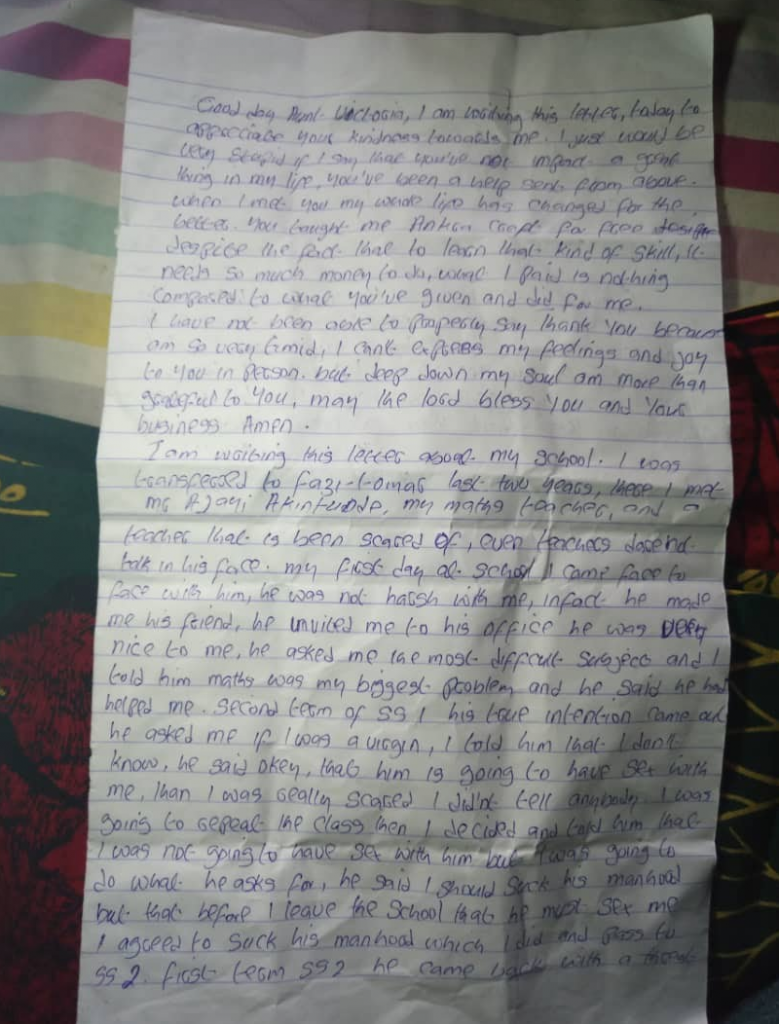 Good day Aunt Victoria, I am writing this letter, today to
appreciate your kindness towards me. I just would be
very stupid if I say that you've not impact a great
thing in my life, you've been a help sent from above.
when I met you my whole life has changed for the
better. You taught me Ankara craft for free
despite the fact that to learn that kind of skill, it
needs so much money to do, what I paid is nothing
compared to what you've given and did for me.
I have not been able to properly say thank you because
am so very timid, I can't express my feelings and joy
to you in person. but deep down my soul am more than
grateful to you, may the lord bless you and your
business Amen.
I am writing this letter about my school. I was
transferred to Fazl-Omar last two years, there I met
mr Ajayi Akintunde, my maths teacher, and a
teacher that is been scared of, even teachers dosend
talk in his face. my first day at school I came face to
face with him, he was not harsh with me, infact he made
me his friend, he invited me to his office he was very
nice to me, he asked me the most difficult subject and I
told him maths was my biggest problem and he said he had
helped me. second term of ss 1 his true intention came out
he asked me if I was a virgin, I told him that I don't
know, he said okey, that him is going to have sex with
me, than I was really scared I did'nt tell anybody I was
going to repeat the class then I decided and told him that
I was not going to have sex with him but I was going to
do what he asks for, he said I should suck his manhood
but that before I leave the school that he must sex me
I agreed to suck his manhood which I did and pass to
ss2. first term ss2 he came back with a threat